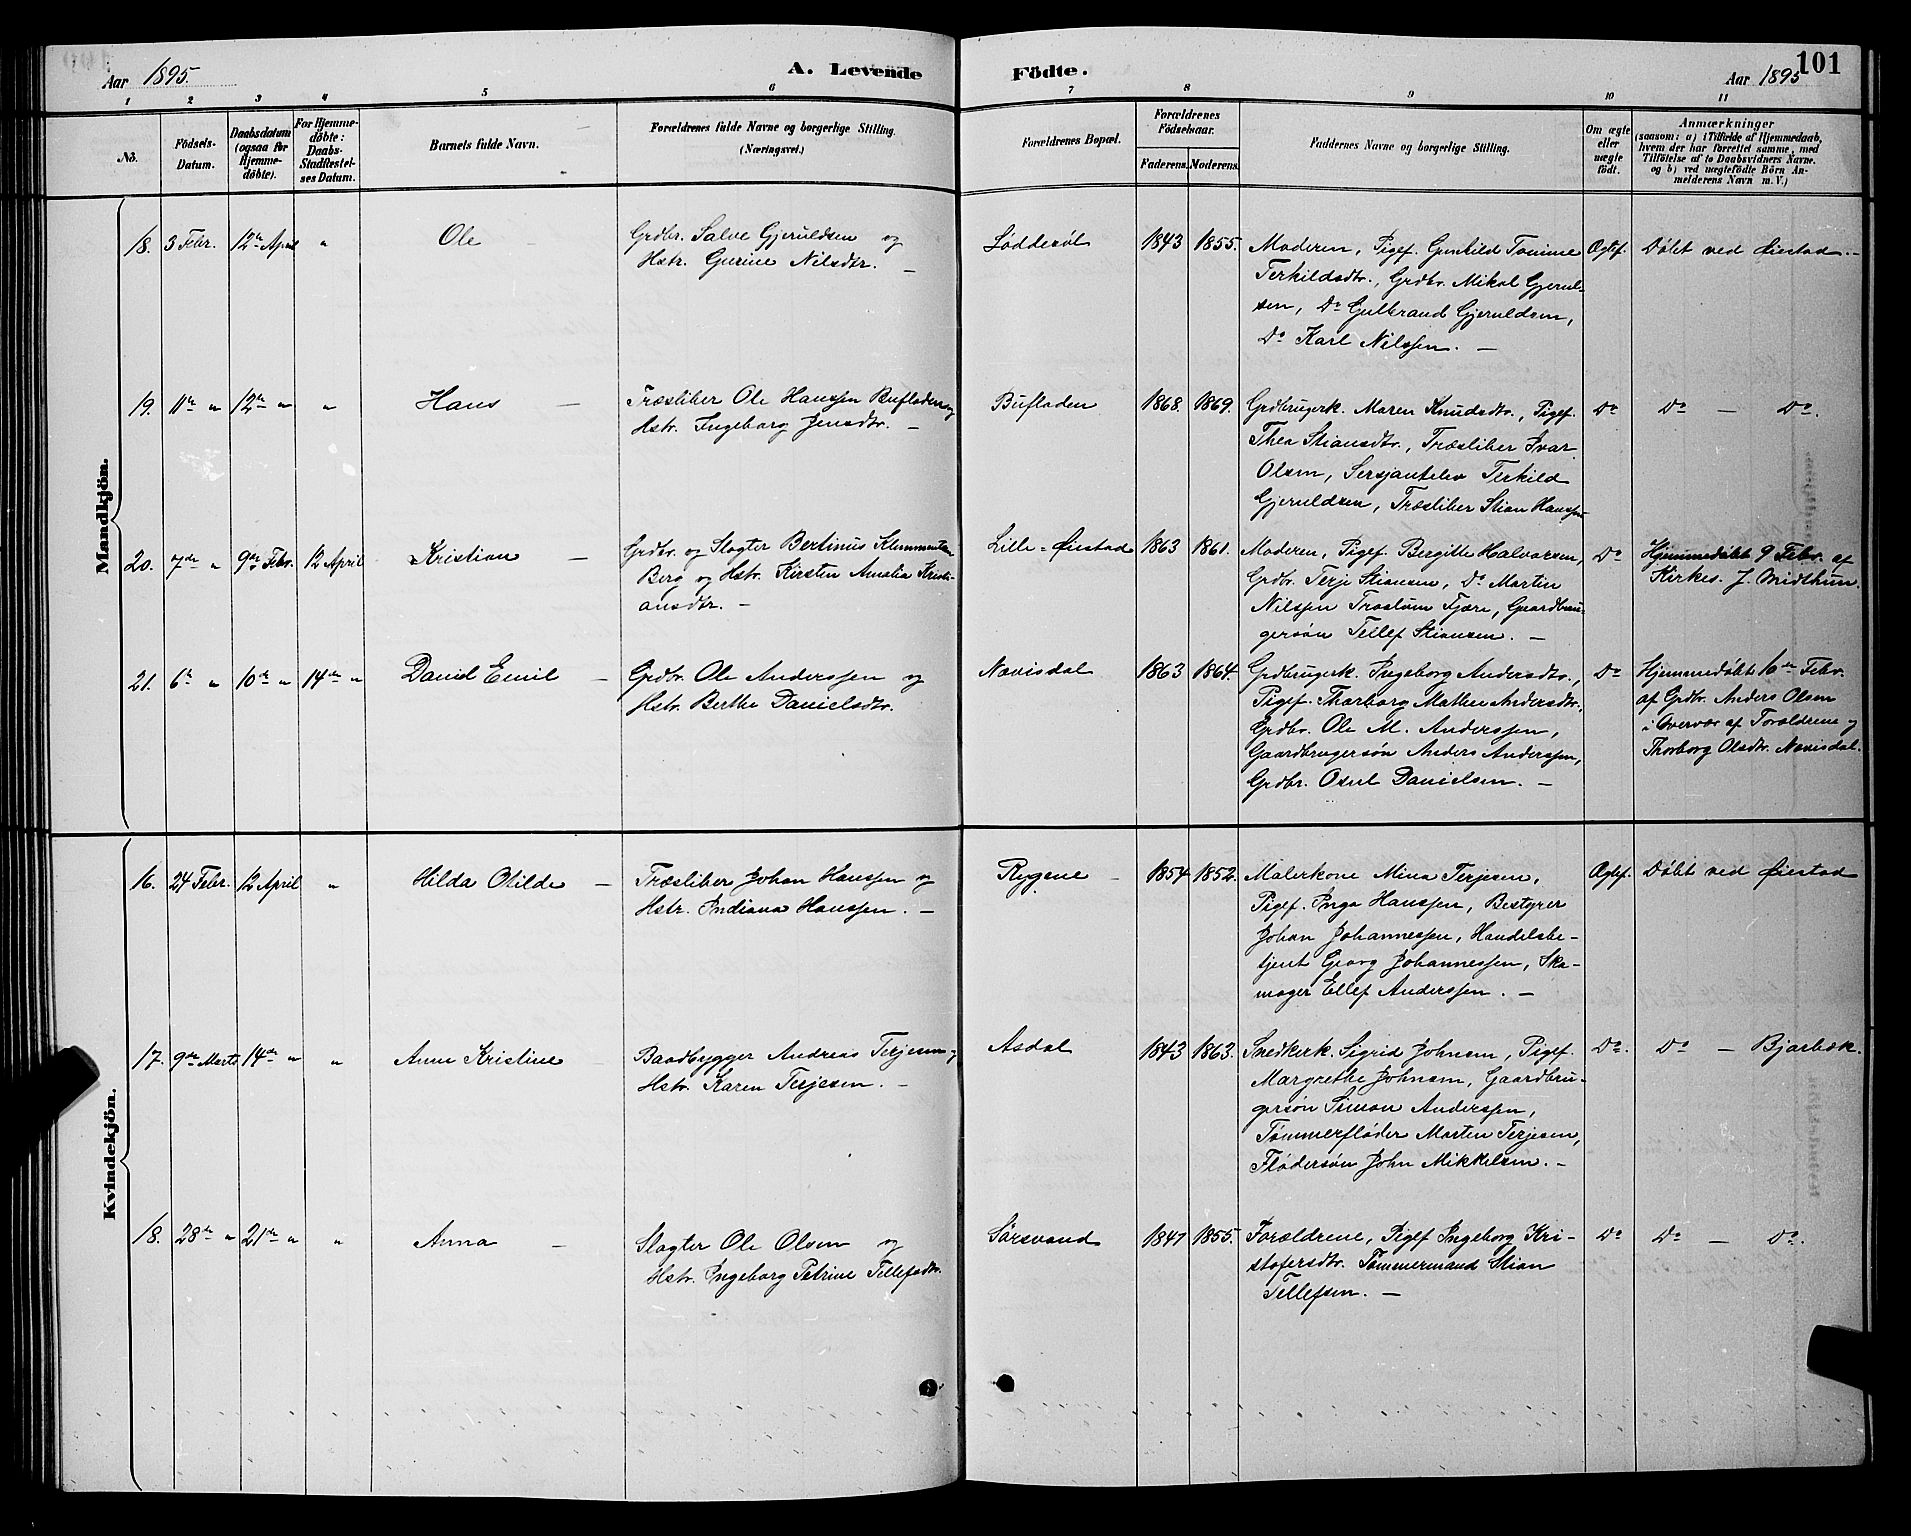 Aar 1895.
A. Levende
Födte.
Aar 1895
101
1
2
3
4
5
6
7
8
9
10
11
No.
Födsels-
Datum.
Daabsdatum
(ogsaa for
Hjemme-
döbte).
For Hjemme-
döbte:
Daabs-
Stadfæstel-
ses Datum.
Barnets fulde Navn.
Forældrenes fulde Navne og borgerlige Stilling.
(Næringsvei.)
Forældrenes Bopæl.
Forældrenes
Födselsaar.
Faderens.
Moderens.
Faddernes Navne og borgerlige Stilling.
Om ægte
eller
uægte
födt.
Anmærkninger
(saasom: a) i Tilfælde af Hjemmedaab,
hvem der har forrettet samme, med
Tilföielse af to Daabsvidners Navne.
og b) ved uægtefödte Börn An-
melderens Navn m. V.)
Mandkjön.
18. 3 Febr. 12te April " Ole -
Grdbr. Salve Gjeruldsen og
Hstr. Gurine Nilsdtr. -
Lödderöl 1843 1855.
Moderen, Pigef. Gunhild Tomine
Terkildsdtr., Grdbr. Mikal Gjerul-
sen, Do Gulbrand Gjeruldsen,
Do Karl Nilssen. -
Ægtef. Döbt ved Øiestad. -
19. 11te " 12te " " Hans -
Træsliber Ole Hanssen Bufladen og
Hstr. Ingeborg Jensdtr. -
Bufladen 1868. 1869.
Grdbrugerk. Maren Knudsdtr., Pigef.
Thea Stiansdtr., Træsliber Ivar
Olsen, Sersjantelev Terkild
Gjeruldsen, Træsliber Stian Hanssen
Do Do - Do.
20. 7de " 9de Febr. 12 April Kristian -
Grdbr. og Slagter Bertinus Klemmentsen
Berg og Hstr. Kirsten Amalia Kristi-
ansdtr. -
Lille-Øiestad 1863 1861.
Moderen, Pigef. Bergitte Halvorsen,
Grdbr. Terje Stiansen, Do Martin
Nilssen Trostum Fjære, Gaardbru-
gersön Tellef Stiansen. -
Do Hjemmedöbt 9 Febr. af
Kirkes. J. Midthun.
21. 6te " 10de " 14de " David Emil -
Grdbr. Ole Anderssen og
Hstr. Berthe Danielsdtr.
Nævisdal 1863 1864.
Grdbrugerk. Ingeborg Andersdtr.,
Pigef. Thorborg Mathea Andersdtr.,
Grdbr. Ole M. Anderssen,
Gaardbrugersøn Anders Anderssen,
Grdbr. Osul Danielsen. -
Do Hjemmedöbt 10de Febr.
af Grdbr. Anders Olsen
i Overvær af Forældrene og
Thorborg Olsdtr. Nævisdal.
Kvindekjön.
16. 24 Febr. 12 April " Hilda Otilde -
Træsliber Johan Hanssen og
Hstr. Indiana Hanssen. -
Rygene - 1854 1852.
Malerkone Mina Terjesen,
Pigef. Inga Hanssen, Bestyrer
Johan Johannessen, Handelsbe-
tjent Georg Johannessen, Sko-
mager Ellef Anderssen. -
Ægtef. Döbt ved Øiestad
17. 9de Marts 14de " " Anne Kristine -
Baadbygger Andreas Terjesen og
Hstr. Karen Terjesen. -
Asdal 1843 1863.
Snedkerk. Sigrid Johnsen, Pigef.
Margrethe Johnsen, Gaardbru-
gersön Simon Anderssen,
Tømmerfløder Martin Terjesen,
Flödersön John Mikkelsen. -
Do. Do - Bjorbæk.
18. 28de " 21de " " Anna -
Slagter Ole Olsen og
Hstr. Ingeborg Petrine Tellefsdtr.
Sörsvand 1847 1855.
Forældrene, Pigef Ingeborg Kri-
stofersdtr. Tømmermand Stian
Tellefsen. -
Do Do - Do.